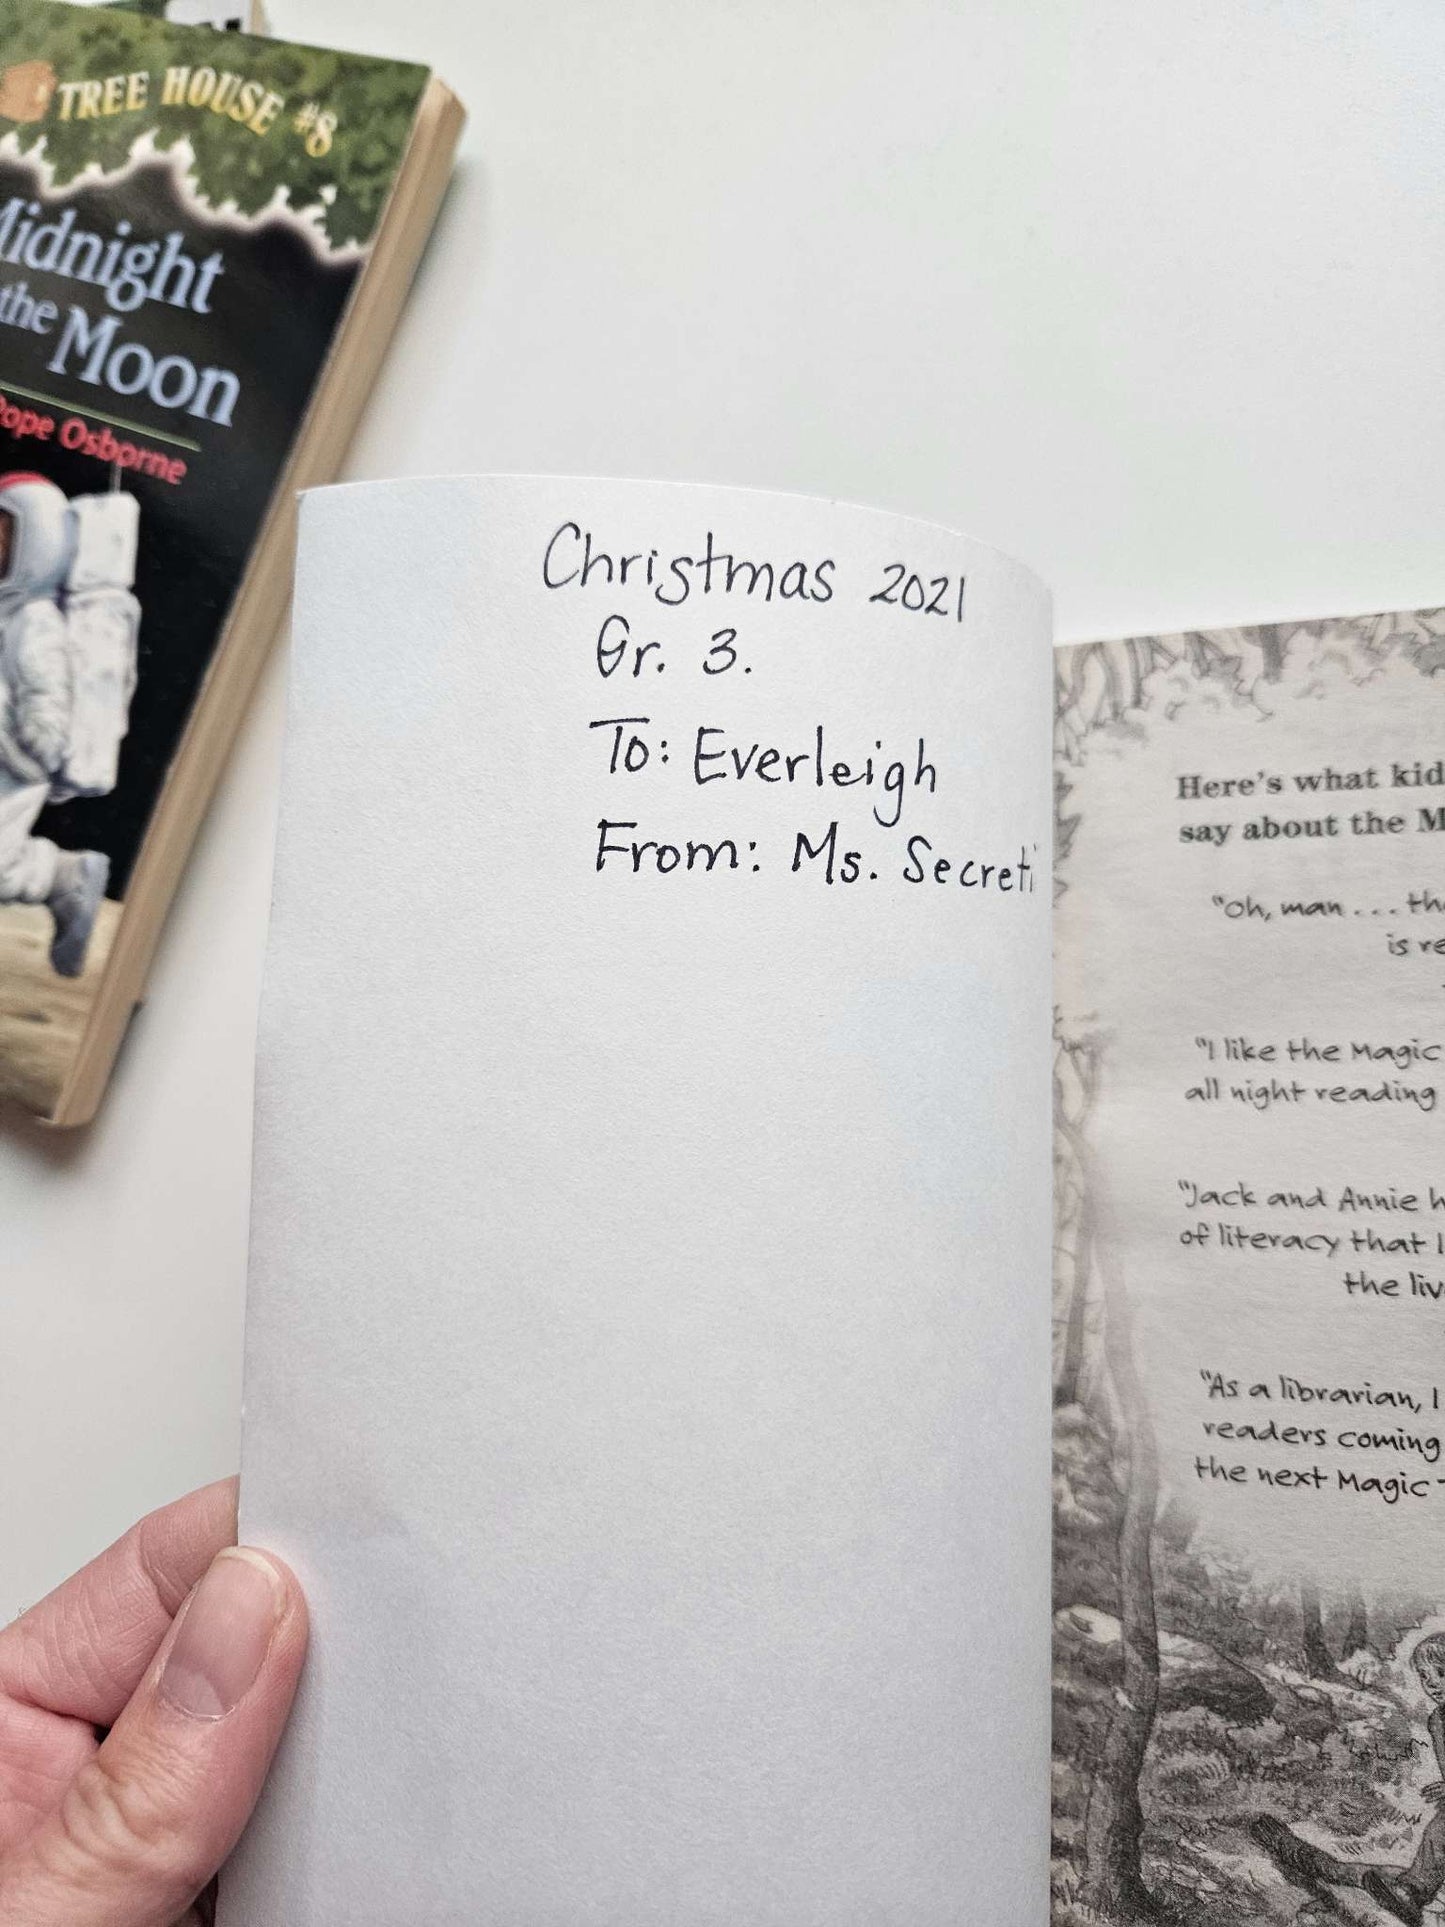 TREE HOUSE #8
Midnight
the Moon
Pope Osborne
Christmas 2021
Gr. 3.
To: Everleigh
From: Ms. Secreti
Here's what kid
say about the M
"Oh, man . . . the
is re
"I like the Magic
all night reading
"Jack and Annie h
of literacy that I
the liv
"As a librarian, I
readers coming
the next Magic T